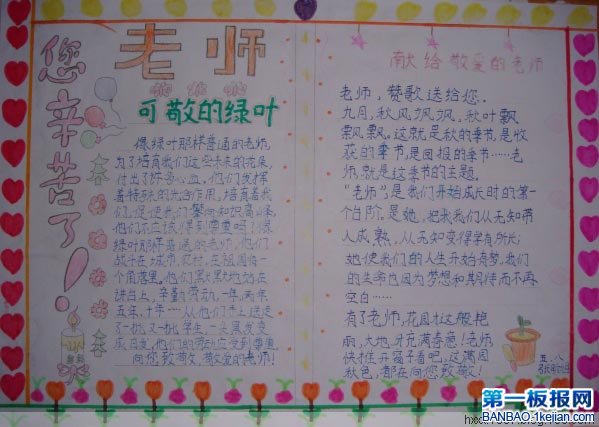 老师
您辛苦了!
可敬的绿叶
像绿叶那样普通的老师,
为了培育我们这些未来的花朵,
付出了许多心血。他们发挥
着特殊的光合作用,培育着我
们,促使我们攀向知识高峰。
他们不应该得到尊重吗?像
绿叶那样普通的老师,他们
战斗在城市、农村,在祖国每一个
角落里。他们默默地站在
讲台上,辛勤的劳动,一年,两年
五年,十年……从他们手上送走
了一批又一批学生,一头黑发变
成白发,他们的劳动应受到尊重
向您致敬,敬爱的老师!
献给敬爱的老师
老师,赞歌送给您.
九月,秋风飒飒,秋叶飘
飘飘。这就是秋的季节,是收
获的季节,是回报的季节……老
师,就是这季节的主题。
"老师",是我们开始成长时的第一
个台阶,是她,把我我们从无知带
入成熟,从无知变得学有所长;
她使我们的人生开始有梦,我们
的生命也因为梦想和期待而不再
空白……
有了老师,花园才这般艳
丽,大地才充满春意!老师
快推开窗子看吧,这满园
秋色,都在向您致敬!
五.八
第一板报网
BANBAO-1kejian.com